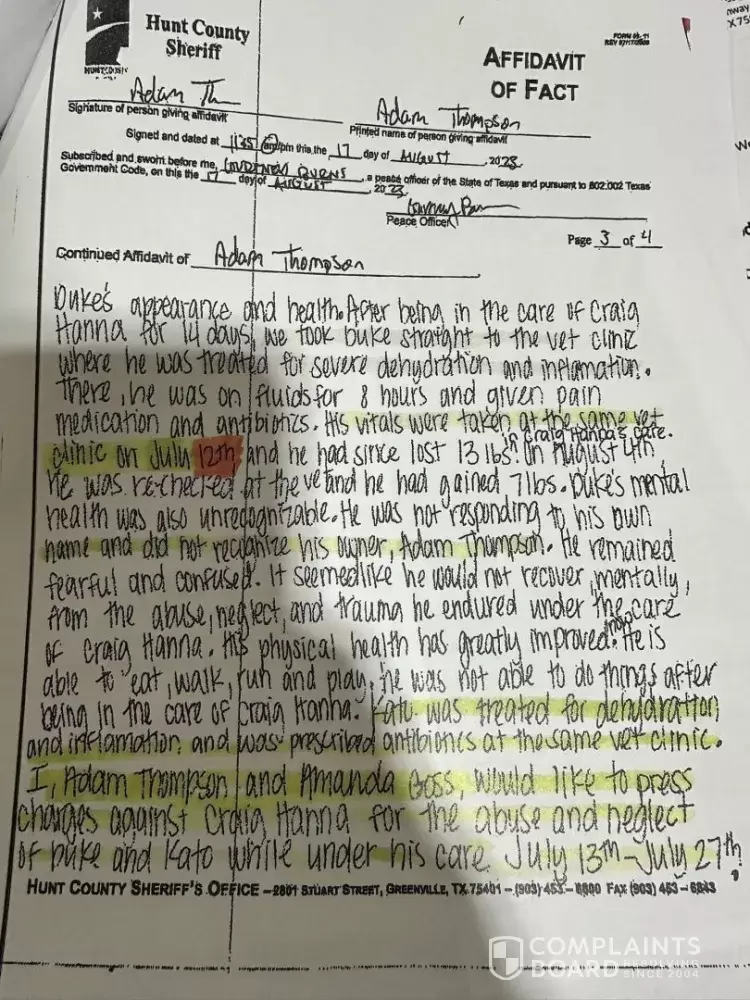 Hunt County
Sheriff
AFFIDAVIT
OF FACT
Adam Th
Signature of person giving affidavit
Adam Thompson
Printed name of person giving affidavit
Signed and dated at 1135 am/pm this the 17 day of AUGUST, 2023
Subscribed and sworn before me, , a peace officer of the State of Texas and pursuant to 602.002 Texas
Government Code, on this the 17 day of AUGUST 2023
Peace Officer
Page 3 of 4
Continued Affidavit of Adam Thompson
Duke's appearance and health. After being in the care of Craig
Hanna for 14 days, we took Duke straight to the vet clinic
where he was treated for severe dehydration and inflamation.
There, he was on fluids for 8 hours and given pain
medication and antibiotics. His vitals were taken at the same vet
clinic on July 12th and he had since lost 13 lbs. in Craig Hanna's care. On August 4th
He was re-checked at the vet and he had gained 7lbs. Duke's mental
health was also unrecognizable. He was not responding to his own
name and did not recognize his owner, Adam Thompson. He remained
fearful and confused. It seemed like he would not recover, mentally,
from the abuse, neglect, and trauma he endured under the care
of Craig Hanna. His physical health has greatly improved now. He is
able to eat, walk, run and play, he was not able to do things after
being in the care of Craig Hanna. Kato was treated for dehydration
and inflamation, and was prescribed antibiotics at the same vet clinic.
I, Adam Thompson and Amanda Goss, would like to press
charges against Craig Hanna for the abuse and neglect
of Duke and Kato while under his care July 13th-July 27th.
HUNT COUNTY SHERIFF'S OFFICE – 2801 STUART STREET, GREENVILLE, TX 75401 – (903) 453 – 6800 FAX (903) 453 – 6843
COMPLAINTS
BOARD RESOLVING
SINCE 2004